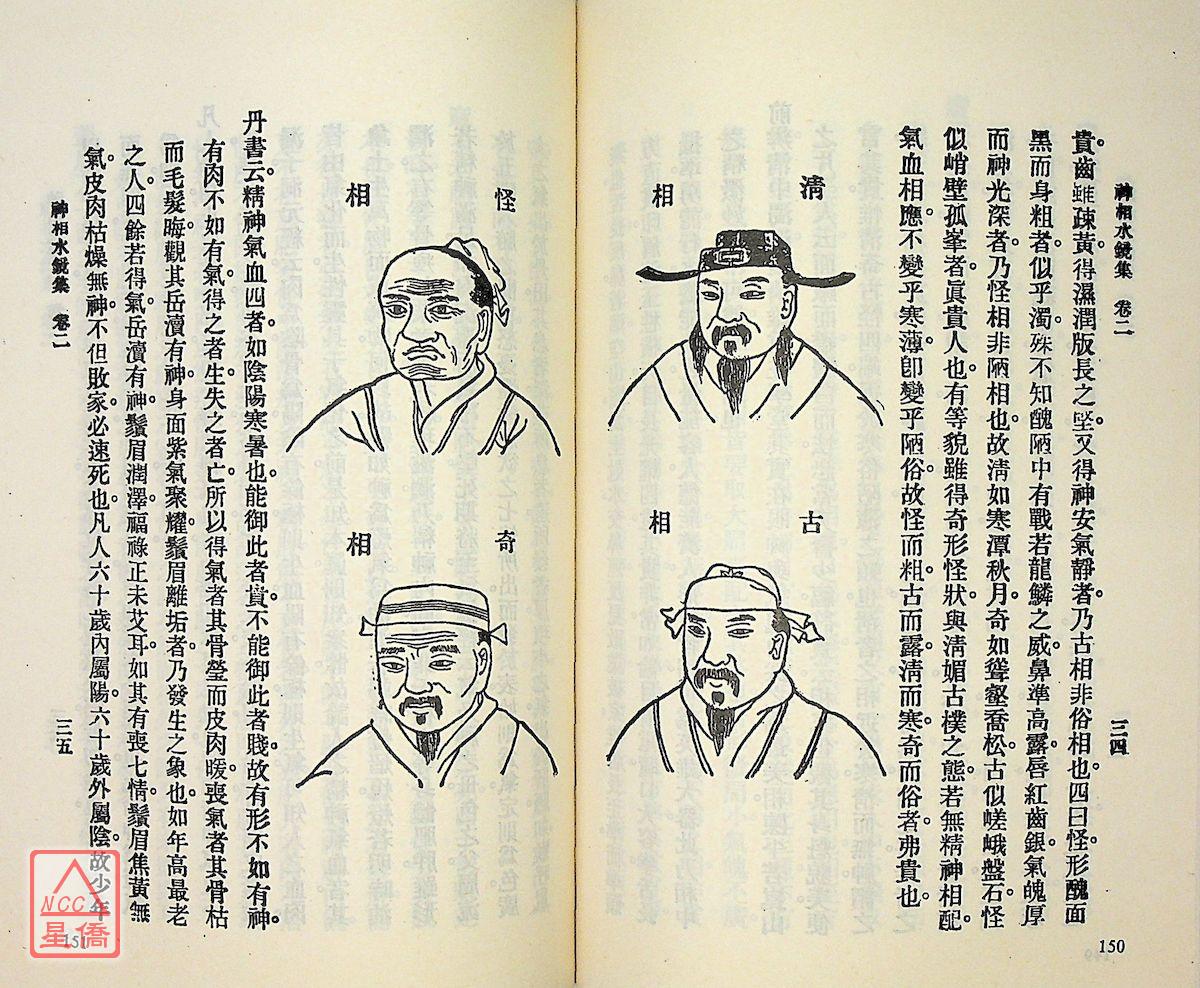 神相水鏡集 卷二
三四
貴。齒雖疎黃。得濕潤版長之堅。又得神安氣靜者。乃古相非俗相也。四曰怪。形醜面
黑而身粗者。似乎濁。殊不知醜陋中有戰若龍鱗之威。鼻準高露。唇紅齒銀。氣魄厚
而神光深者。乃怪相非陋相也。故淸如寒潭秋月。奇如聳壑喬松。古似嵯峨盤石。怪
似峭壁孤峯者。眞貴人也。有等貌雖得奇形怪狀。與淸媚古樸之態。若無精神相配。
氣血相應。不變乎寒薄。卽變乎陋俗。故怪而粗。古而露。淸而寒。奇而俗者。弗貴也。
淸相
古相
150
怪相
奇相
丹書云。精神氣血四者。如陰陽寒暑也。能御此者貴。不能御此者賤。故有形不如有神。
有肉不如有氣。得之者生。失之者亡。所以得氣者。其骨瑩而皮肉暖。喪氣者。其骨枯
而毛髮晦。觀其岳瀆有神。身面紫氣聚耀。鬚眉離垢者。乃發生之象也。如年高最老
之人。四餘若得氣。岳瀆有神。鬚眉潤澤。福祿正未艾耳。如其有喪七情。鬚眉焦黃。無
氣。皮肉枯燥無神。不但敗家。必速死也。凡人六十歲內屬陽。六十歲外屬陰。故少年
神相水鏡集 卷二
三五
151
NCC
星僑